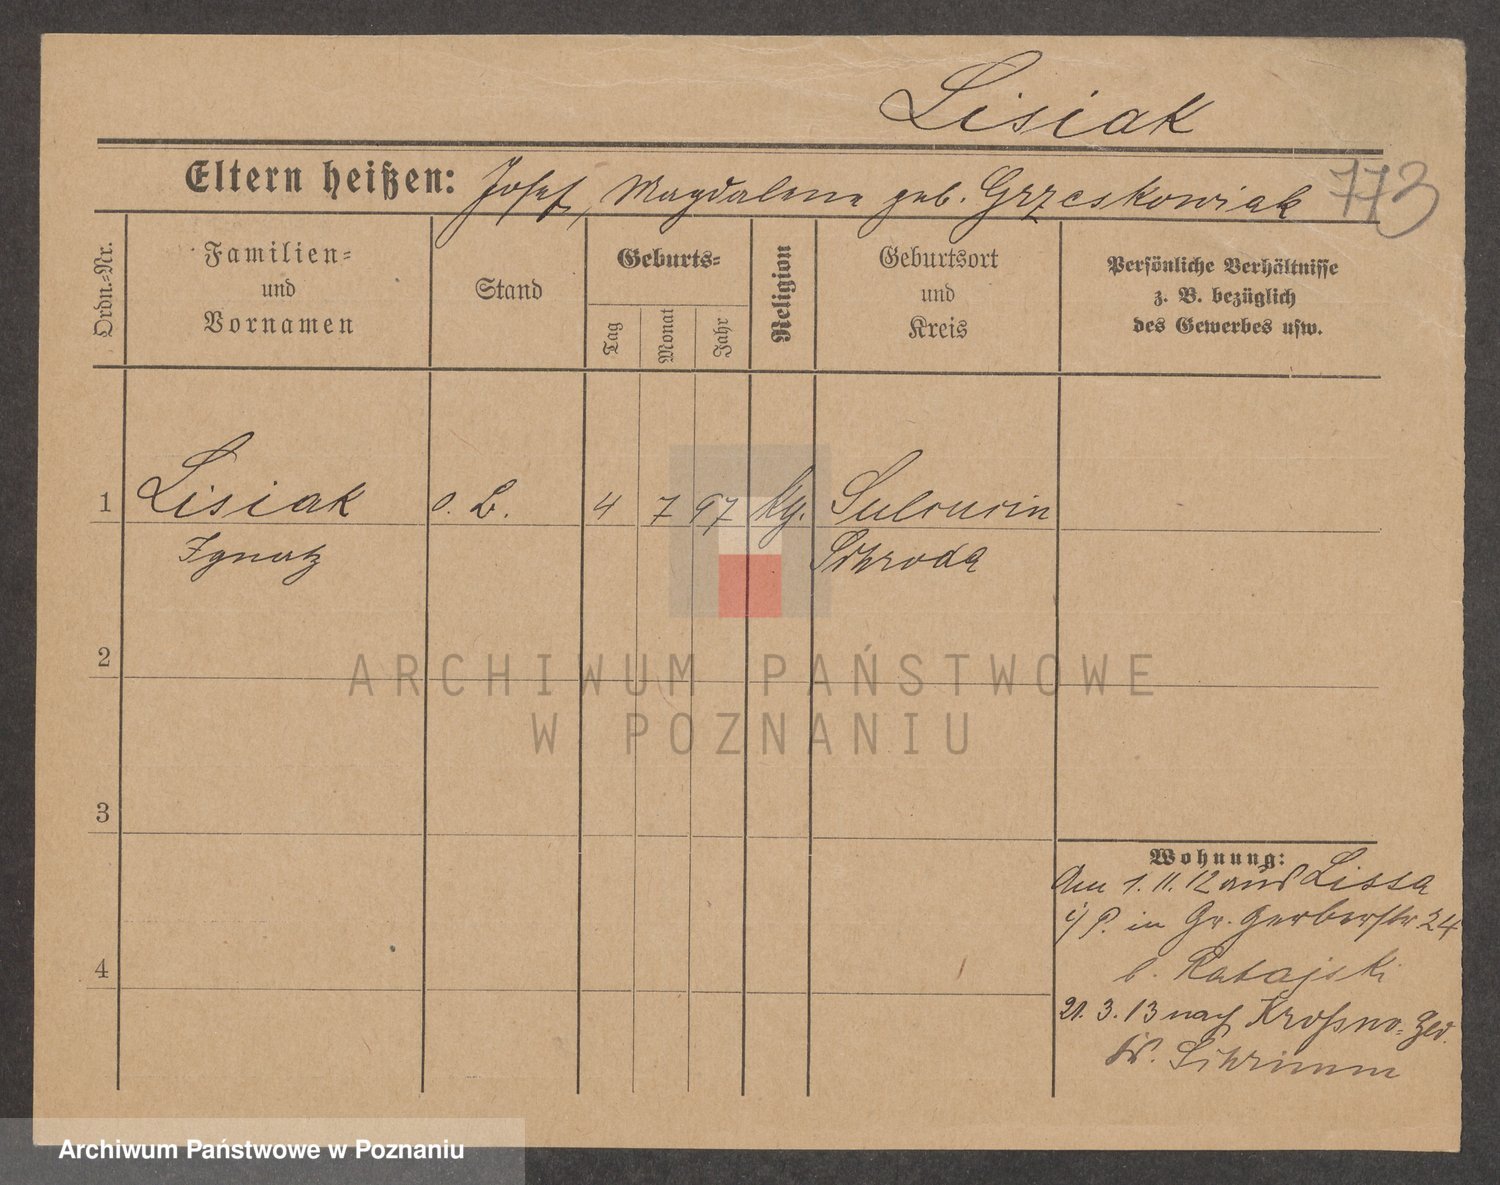 Lisiak
Eltern heißen: Josef, Magdalena geb. Grzeskowiak 773
Ordn.-Nr.
Familien-
und
Vornamen
Stand
Geburts-
Tag
Monat
Jahr
Religion
Geburtsort
und
Kreis
Persönliche Verhältnisse
z. B. bezüglich
des Gewerbes usw.
1 Lisiak o. B. 4 7 97 kth. Sulencin
Ignatz Schroda
2
ARCHIWUM PAŃSTWOWE
W POZNANIU
3
Wohnung:
Am 1. 11. 12 aus Lissa
i/P. in Gr. Gerberstr 24
4
b. Ratajski
21. 3. 13 nach Krosno-
Schrimm
Archiwum Państwowe w Poznaniu